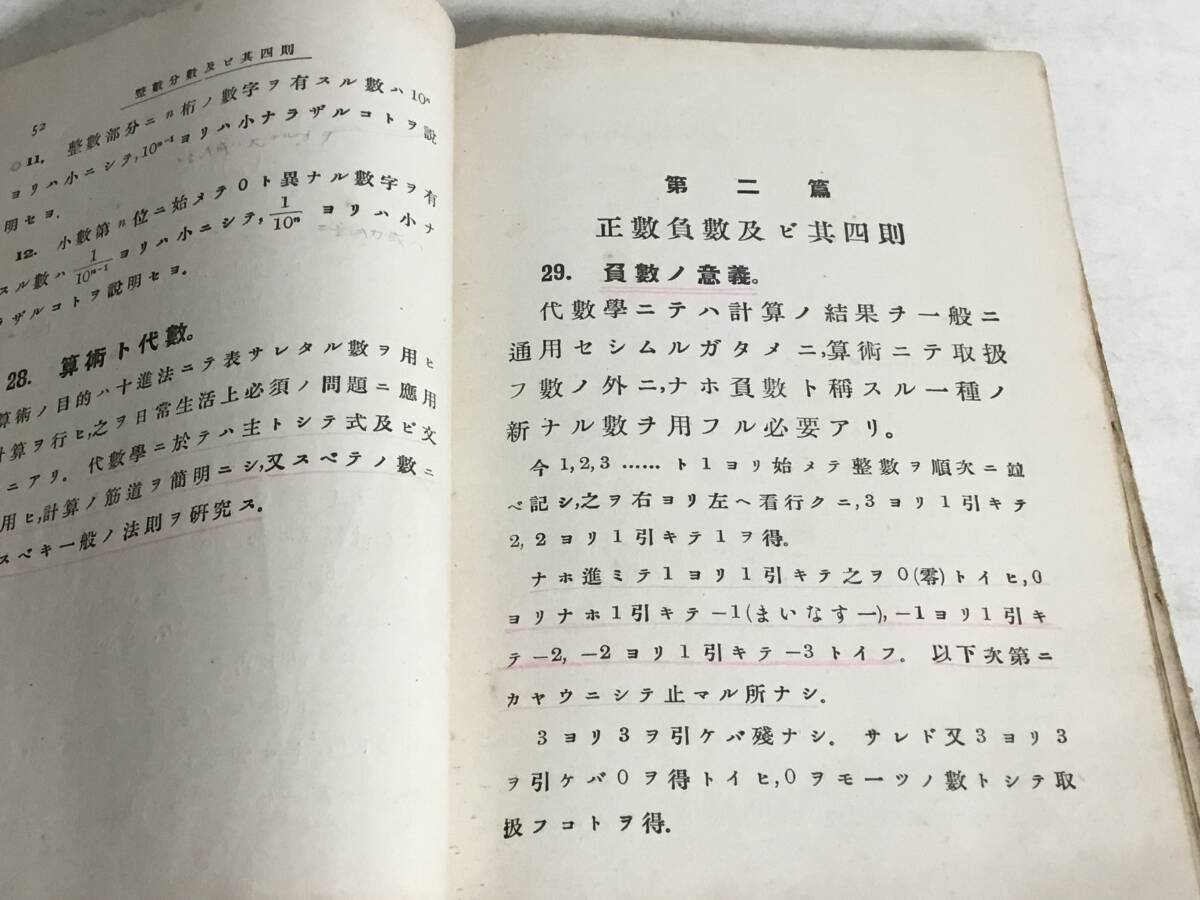 整數分數及ビ其四則
52
○11. 整數部分ニn桁ノ數字ヲ有スル數ハ10ⁿ
ヨリハ小ニシテ,10ⁿ⁻¹ヨリハ小ナラザルコトヲ說
明セヨ.
12. 小數第n位ニ始メテ0ト異ナル數字ヲ有
スル數ハ 1/10ⁿ⁻¹ ヨリハ小ニシテ, 1/10ⁿ ヨリハ小ナ
ラザルコトヲ說明セヨ.
28. 算術ト代數。
算術ノ目的ハ十進法ニテ表サレタル數ヲ用ヒ
計算ヲ行ヒ,之ヲ日常生活上必須ノ問題ニ應用
ニアリ。代數學ニ於テハ主トシテ式及ビ文
用ヒ,計算ノ筋道ヲ簡明ニシ,又スベテノ數ニ
スベキ一般ノ法則ヲ硏究ス。
第二篇
正數負數及ビ其四則
29. 負數ノ意義。
代數學ニテハ計算ノ結果ヲ一般ニ
通用セシムルガタメニ,算術ニテ取扱
フ數ノ外ニ,ナホ負數ト稱スル一種ノ
新ナル數ヲ用フル必要アリ。
今1,2,3……ト1ヨリ始メテ整數ヲ順次ニ竝
ベ記シ,之ヲ右ヨリ左ヘ看行クニ,3ヨリ1引キテ
2,2ヨリ1引キテ1ヲ得。
ナホ進ミテ1ヨリ1引キテ之ヲ0(零)トイヒ,0
ヨリナホ1引キテ−1(まいなす一),−1ヨリ1引キ
テ−2,−2ヨリ1引キテ−3トイフ。以下次第ニ
カヤウニシテ止マル所ナシ。
3ヨリ3ヲ引ケバ殘ナシ。サレド又3ヨリ3
ヲ引ケバ0ヲ得トイヒ,0ヲモ一ツノ數トシテ取
扱フコトヲ得。